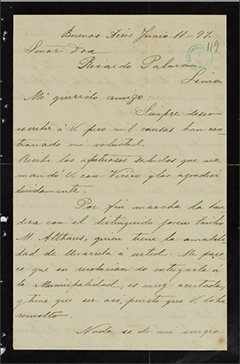 Buenos Aires Junio 11-97.
119
Señor Don
Ricardo Palma
Lima
Mi querido amigo:
Siempre deseo
escribir á V. pero mil causas han con-
trariado mi voluntad.
Recibí los afectuosos saludos que me
mandó V. con y los agradecí
debidamente.
Por fin marcha la ban
dera con el distinguido joven Emilio
M. Althaus, quien tiene la amabili-
dad de llevarla á usted. Me pare-
ce que su resolucion de entregarla á
la Municipalidad, es muy acertada,
y tiene que ser así, puesto que V. lo ha
resuelto.
Nada se de mi suegro